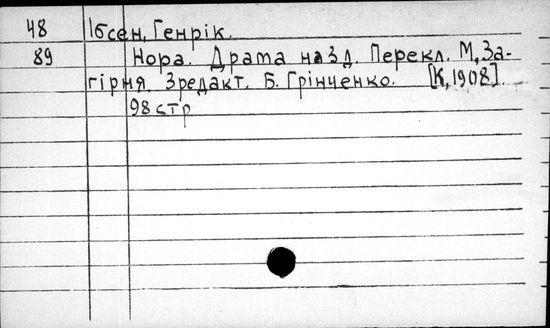 48 Ібсен, Генрік.
89 Нора. Драма на 3 д. Перекл. М, За-
гірня. Зредакт. Б. Грінченко. [К, 1908].
98 стр